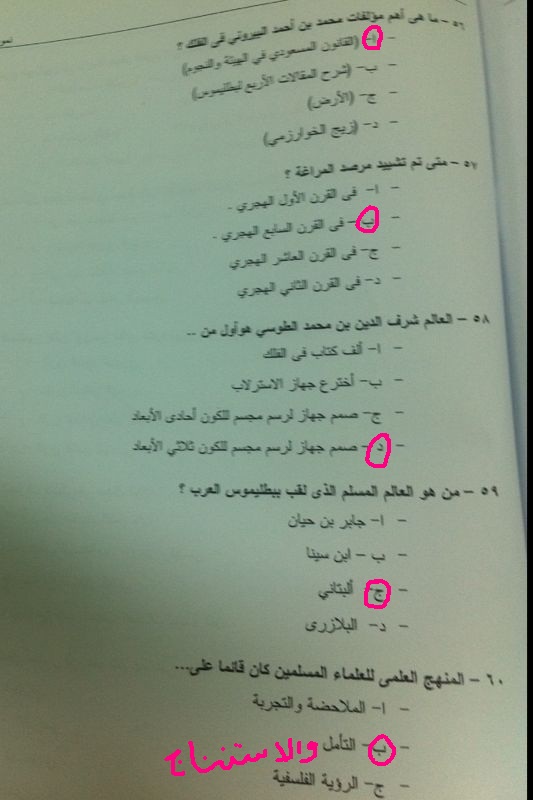 ٥٦ - ما هى أهم مؤلفات محمد بن أحمد البيروني فى الفلك ؟
- ا- (القانون المسعودي في الهيئة والنجوم)
- ب- (شرح المقالات الأربع لبطليموس)
- ج- (الأرض)
- د- (زيج الخوارزمي)
٥٧ - متى تم تشييد مرصد المراغة ؟
- ا- فى القرن الأول الهجري .
- ب- فى القرن السابع الهجري .
- ج- فى القرن العاشر الهجري
- د- فى القرن الثاني الهجري
٥٨ - العالم شرف الدين بن محمد الطوسي هوأول من ..
- ا- ألف كتاب فى الفلك
- ب- أخترع جهاز الاسترلاب
- ج- صمم جهاز لرسم مجسم للكون أحادى الأبعاد
- د- صمم جهاز لرسم مجسم للكون ثلاثي الأبعاد
٥٩ - من هو العالم المسلم الذى لقب ببطليموس العرب ؟
- ا- جابر بن حيان
- ب - ابن سينا
- ج- ألبتاني
- د- البلازرى
٦٠ - المنهج العلمى للعلماء المسلمين كان قائما على...
- ا- الملاحضة والتجربة
- ب- التأمل والاستنتاج
- ج- الرؤية الفلسفية